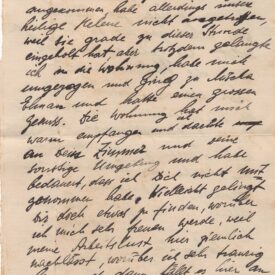 angekommen habe allerdings unsere
heilige Helene nicht angetroffen,
weil sie grade zu dieser Stunde
eingeholt hat aber trotzdem gelangte
ich in die Wohnung, habe mich
umgezogen und ging zu
und hatte einen grossen
Genuss. Die Wohnung hat mich
warm empfangen und dachte
an Dein Zimmer und seine
sonstige Umgebung und habe
bedauert, dass ich Dich nicht mit-
genommen habe. Vielleicht gelingt
Dir doch etwas zu finden, worüber
ich mich sehr freuen werde, weil
meine Arbeitslust hier ziemlich
nachlässt, worüber ich sehr traurig